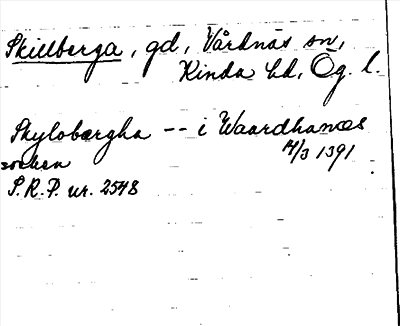 Skillberga, gd, Vårdnäs sn,
Kinda hd, Ög. l.
Skylobærgha -- i Waardhanæs
socken 14/3 1391
S.R.P. nr. 2548